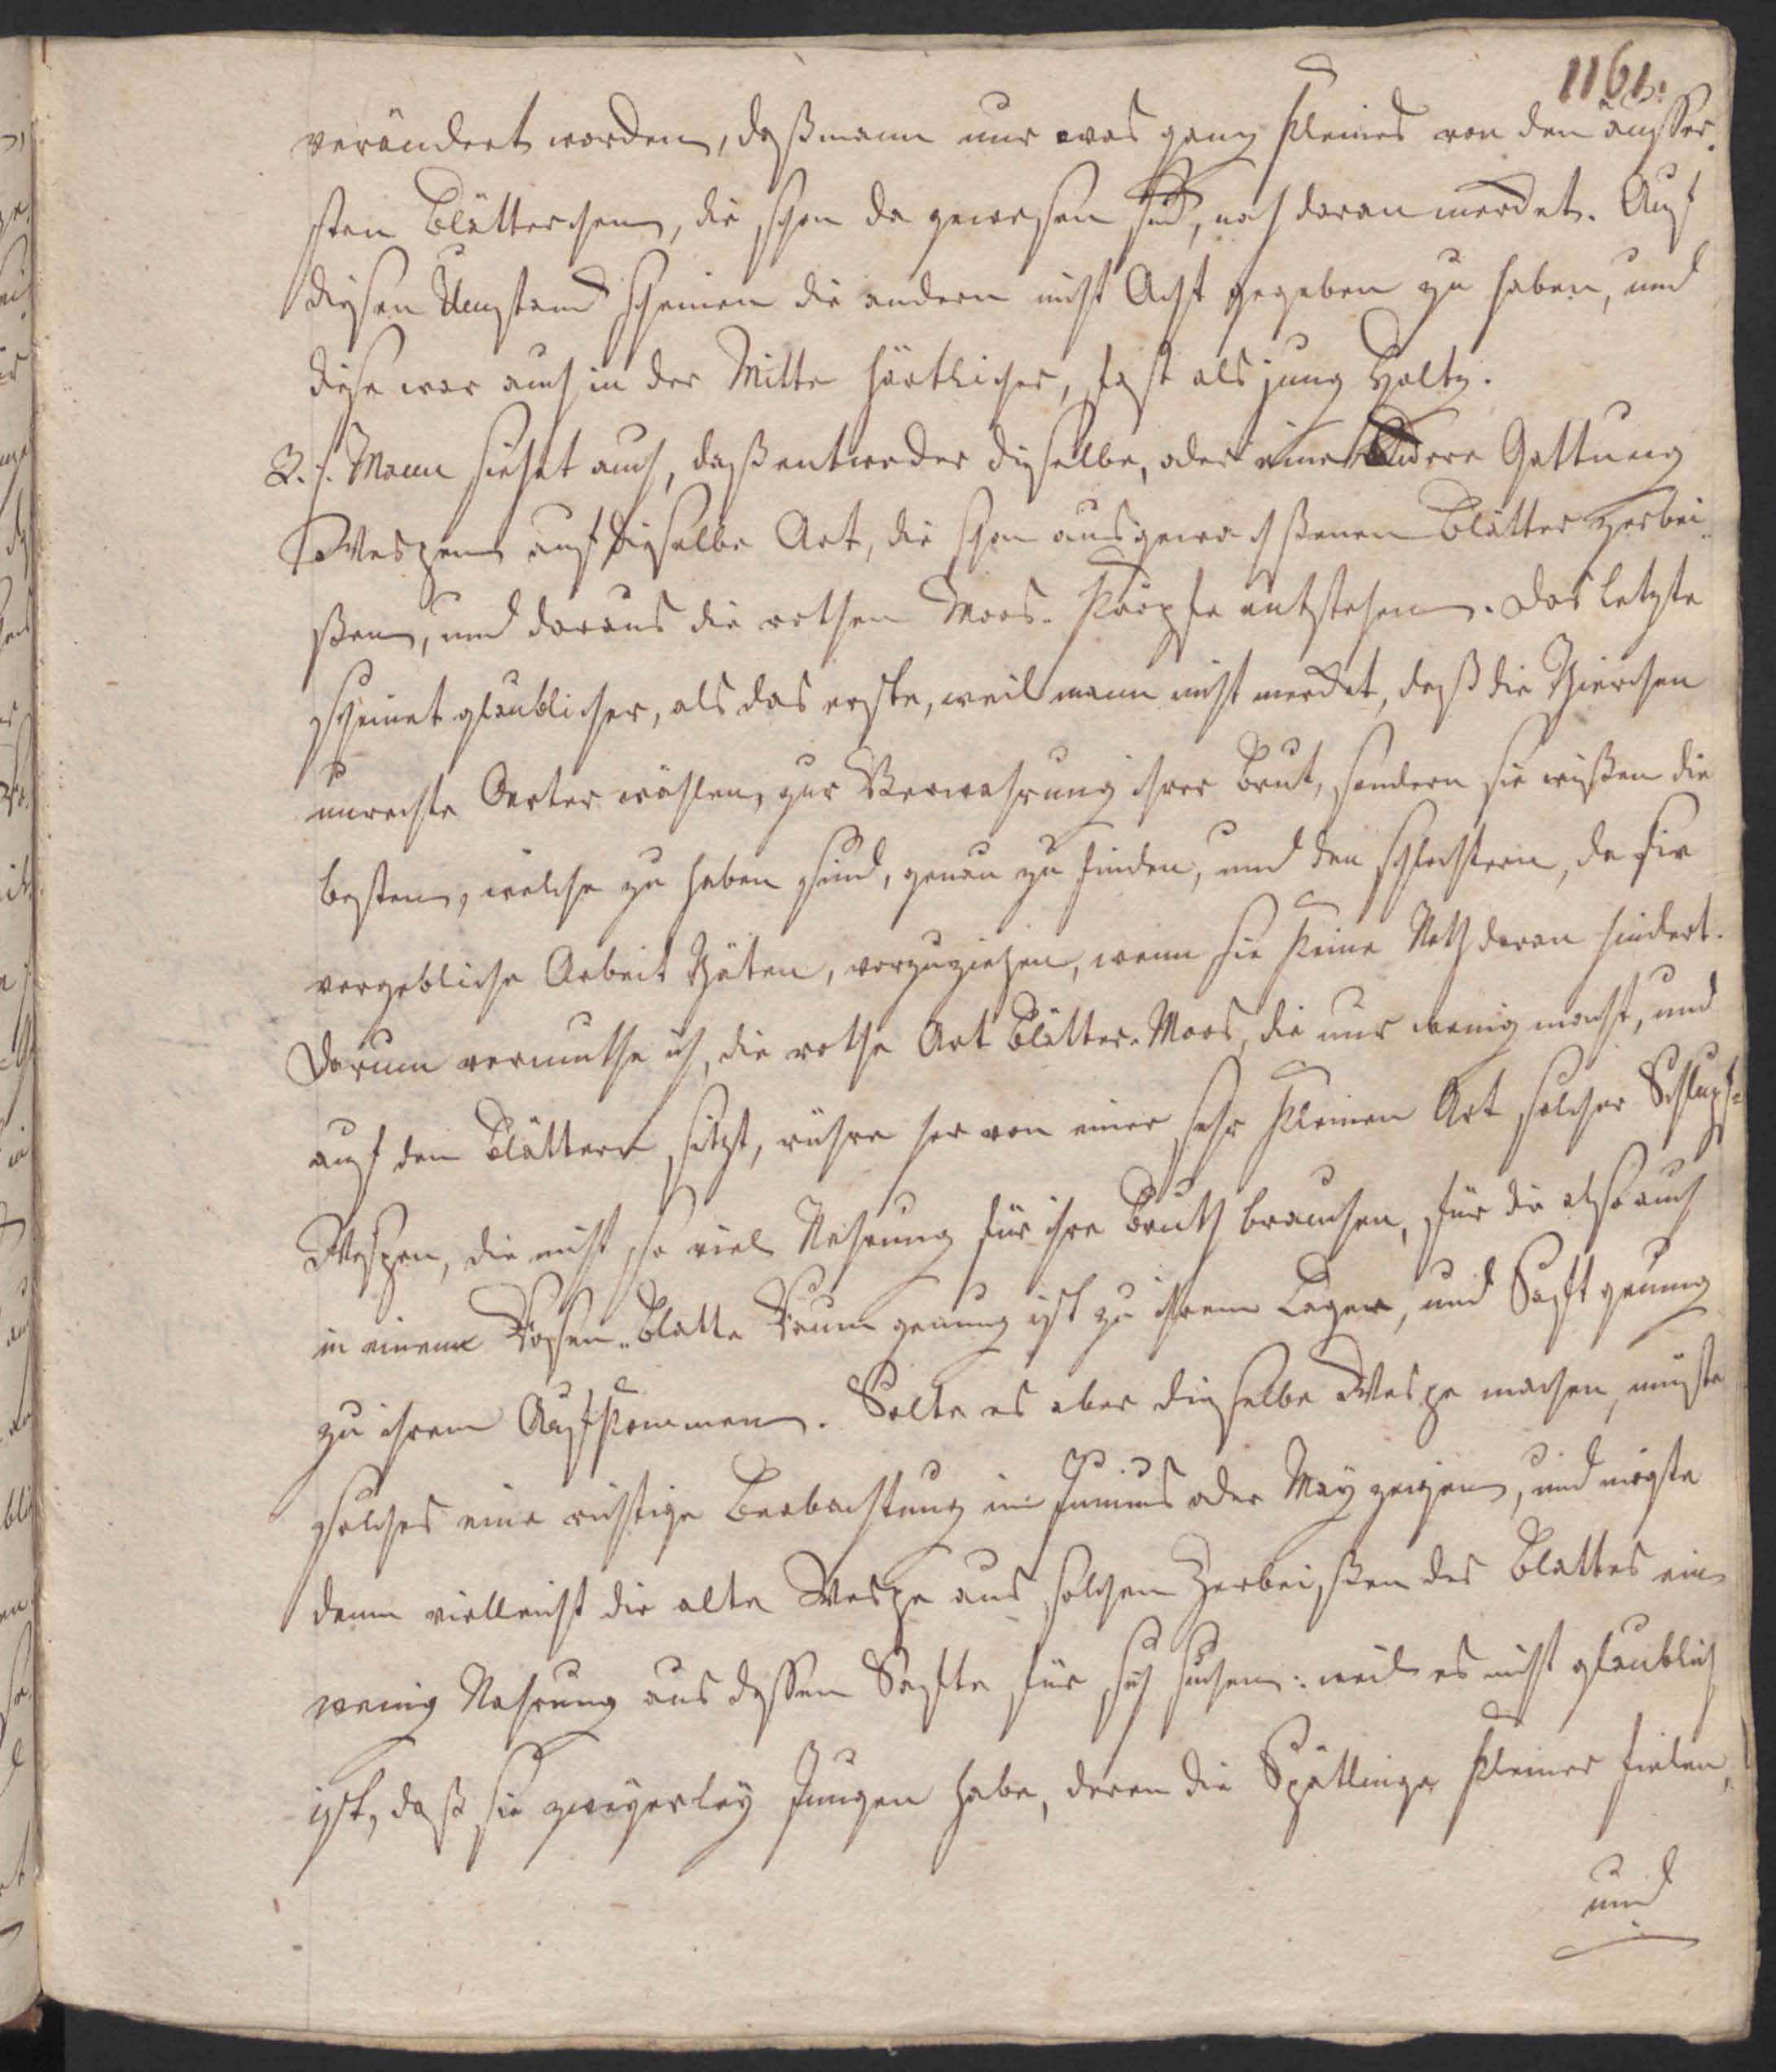 1161.
verändert worden, daß mann nur was ganz kleines von den äusser-
sten Blätterchen, die schon da gewesen sind, noch daran merckt. Auf
diesen Umstand scheinen die andern nicht Acht gegeben zu haben, und
diese war auch in der Mitte härtlicher, fast als jung Holtz.
Mann siehet auch, daß entweder dieselbe, oder eine andere Gattung
Wespen auf dieselbe Art, die schon ausgewachßenen Blätter zerbei-
ßen, und daraus die rothen Moos-Knöpfe entstehen. Das letzte
scheinet glaublicher, als das erste, weil mann nicht merckt, daß die Thierchen
unrechte Oerter wählen, zur Verwahrung ihrer Brut, sondern sie wißen die
besten, welche zu haben sind, genau zu finden, und den schlechtern, da sie
vergebliche Arbeit thäten, vorzuziehen, wenn sie keine Noth daran hindert.
Darum vermuthe ich, die rothe Art Blätter-Moos, die nur wenig wächst, und
auf den Blättern sitzt, rühre her von einer sehr kleinen Art solcher Schlupf-
Wespen, die nicht so viel Nahrung für ihre Bruth brauchen, für die also auch
in einem Rosen-Blatte Raum genung ist zu ihrem Lager, und Safft genung
zu ihrem Aufkommen. Solte es aber dieselbe Wespe machen, müste
solches eine richtige Beobachtung im Junius oder May zeigen, und mögte
denn vielleicht die alte Wespe aus solchem Zerbeißen des Blattes ein
wenig Nahrung aus dessen Saffte für sich suchen: weil es nicht glaublich
ist, daß sie zweyerley Jungen habe, deren die Spätlinge kleiner fielen,
und